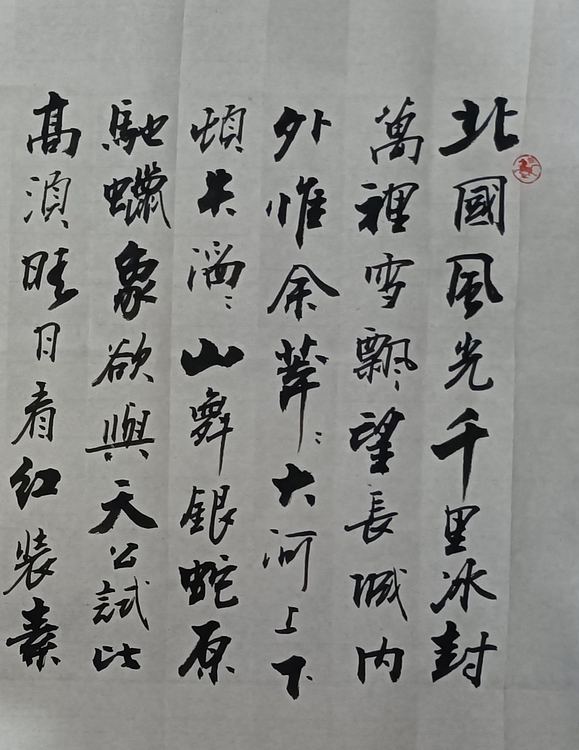 北國風光千里冰封
萬裡雪飄望長城内
外惟余莽〻大河上下
頓失滔〻山舞銀蛇原
馳蠟象欲與天公試比
高須晴日看红裝素